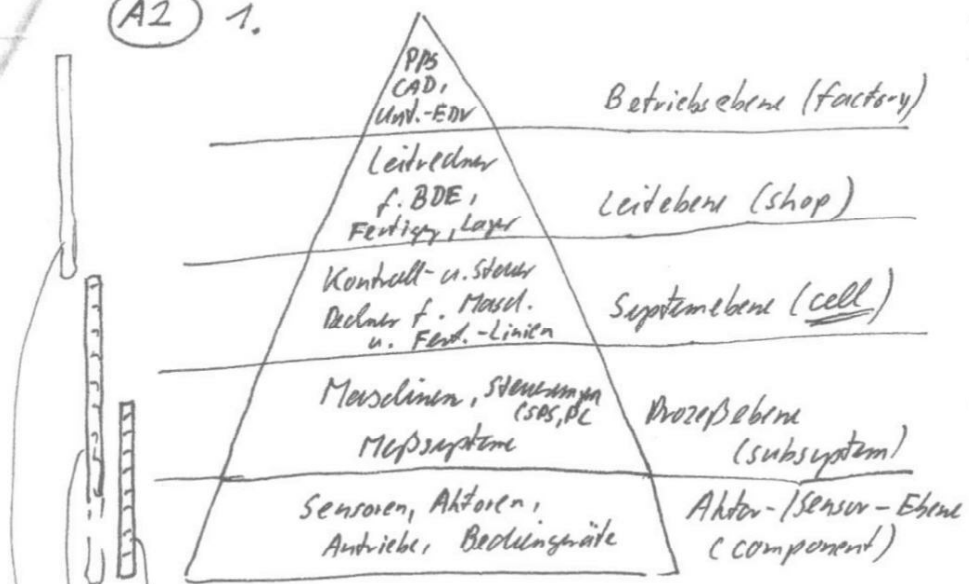 A2 1.
PPS
CAD,
Unt.-EDV
Betriebsebene (factory)
Leitrechner
f. BDE,
Fertigg, Lager
Leitebene (shop)
Kontroll- u. Steuer
Rechner f. Masch.
u. Fert.-Linien
Systemebene (cell)
Maschinen, Steuerungen
(SPS, PC
Meßsysteme
Prozeßebene
(subsystem)
Sensoren, Aktoren,
Antriebe, Bediengeräte
Aktor-/Sensor-Ebene
(component)